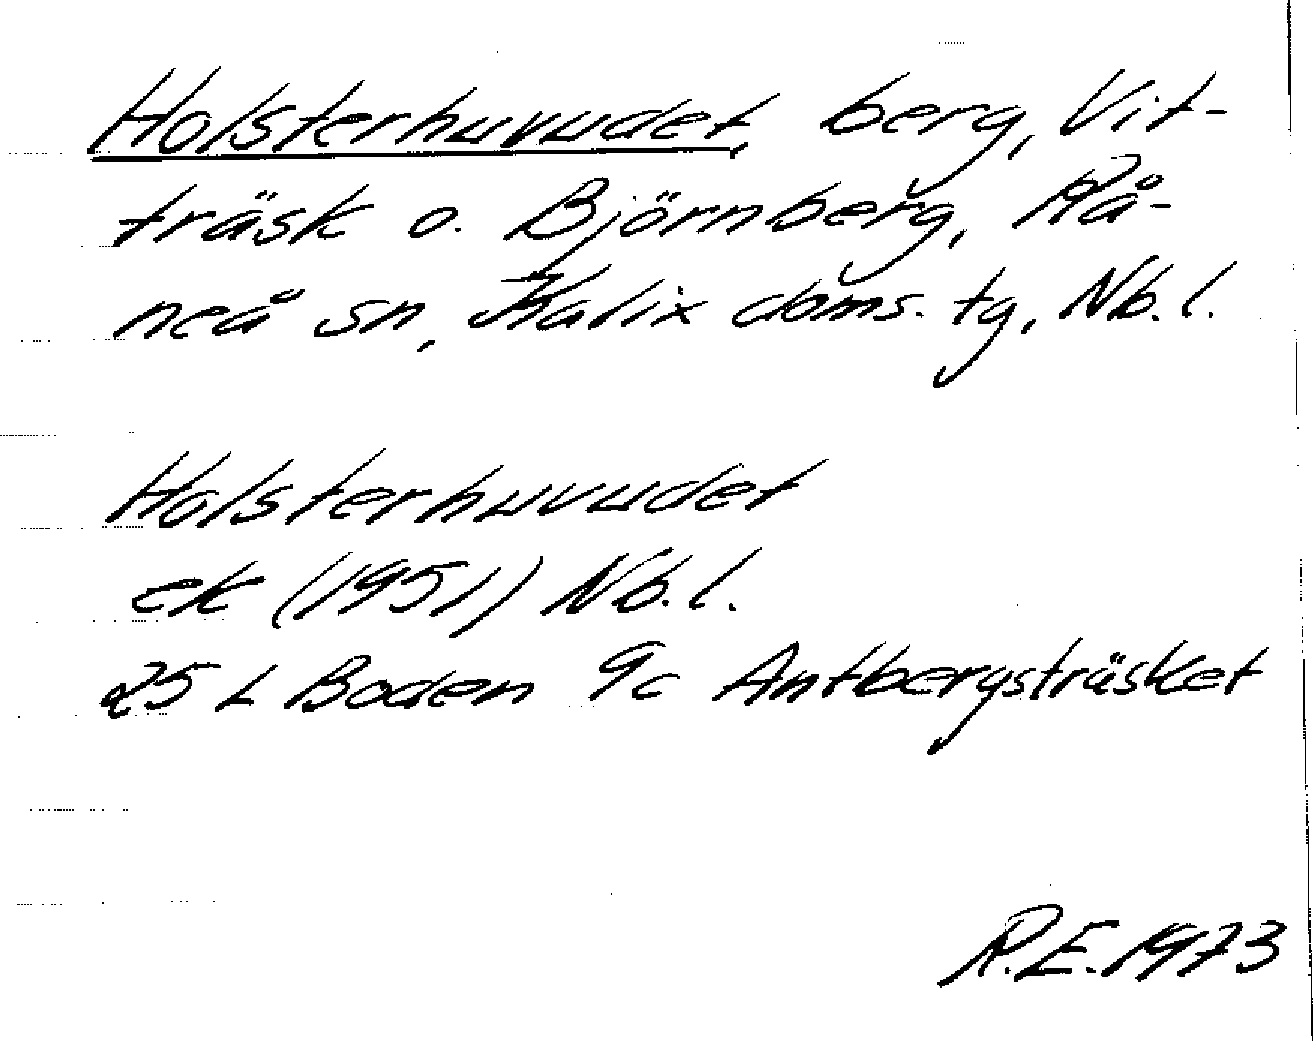 Holsterhuvudet, berg, Vit-
träsk o. Björnberg, Rå-
neå sn, Kalix doms. tg, Nb.l.
Holsterhuvudet
ek (1951) Nb.l.
25 L Boden 9c Antbergsträsket
R.E. 1973